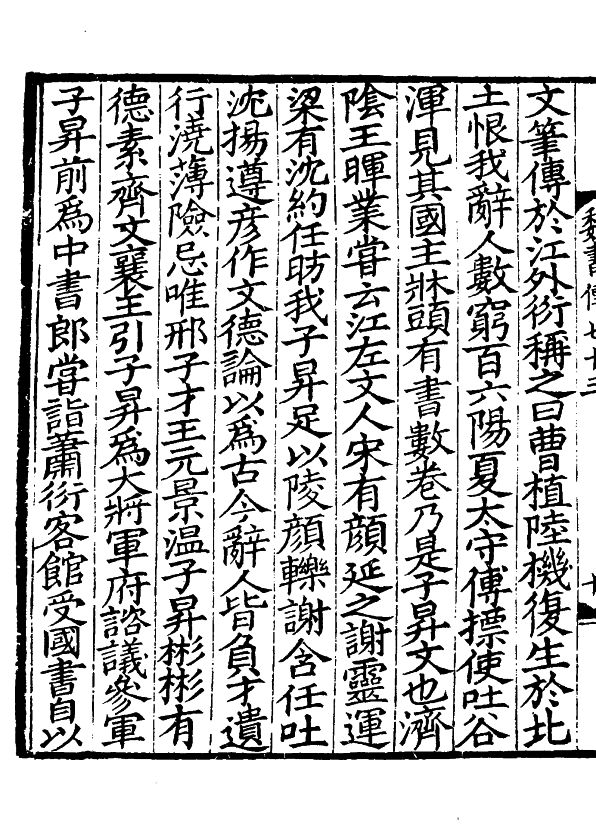 魏書傳七十三
文筆傳於江外衍稱之曰曹植陸機復生於北
土恨我辭人數窮百六陽夏太守傅摽使吐谷
渾見其國主牀頭有書數卷乃是子昇文也濟
陰王暉業甞云江左文人宋有顔延之謝靈運
梁有沈約任昉我子昇足以陵顔轢謝含任吐
沈揚遵彦作文德論以爲古今辭人皆負才遺
行澆薄險忌唯邢子才王元景温子昇彬彬有
德素齊文襄王引子昇爲大將軍府諮議參軍
子昇前爲中書郎甞詣蕭衍客館受國書自以